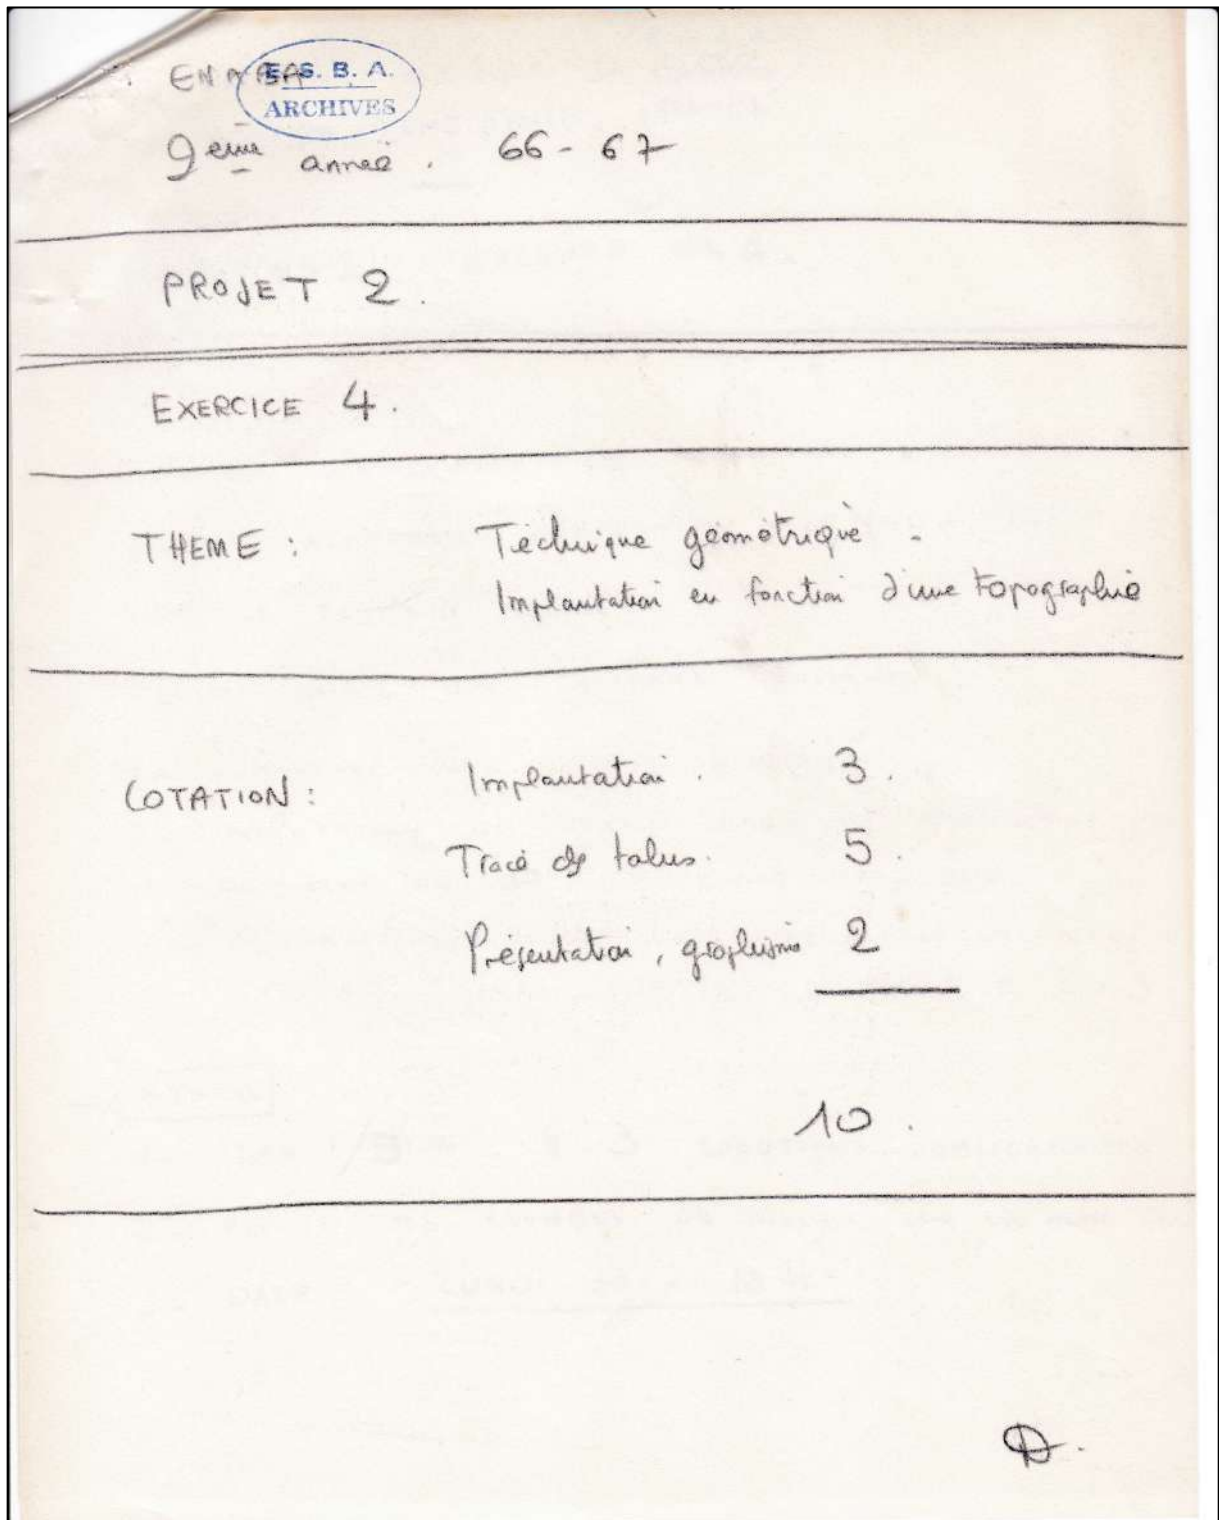 E. S. B. A.
ARCHIVES
9eme année . 66 - 67
PROJET 2.
EXERCICE 4.
THEME : Technique géométrique .
Implantation en fonction d'une topographie
COTATION : Implantation . 3.
Tracé de talus. 5.
Présentation, graphisme 2
10.